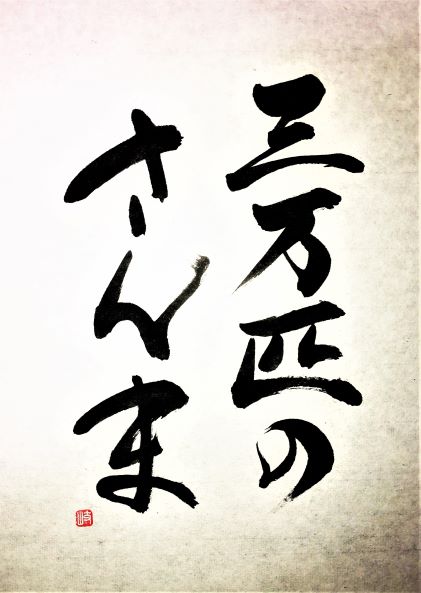 三万匹の
さんま
岐